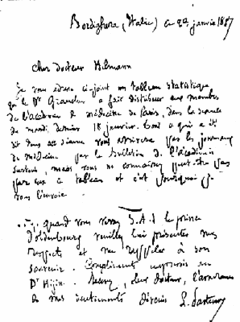 Bordighera, (Italie) ce 22 janvier 1887
Cher docteur Helmann
Je vous envoie ci-joint un tableau statistique
que le Dr Grancher a fait distribuer aux membres
de l'académie de médecine de Paris, dans la séance
de mardi dernier 18 janvier. Tout ce qui a été
dit dans cette séance vous arrivera par les journaux
de médecine par le bulletin de l'académie
mais vous ne connaîtriez peut-être pas
ce tableau et c'est pourquoi je
vous l'envoie.
quand vous verrez S.A.I. le prince
d'Oldenbourg veuillez lui présenter mes
respects et me rappeler à son
souvenir. Compliments empressés au
Dr
de mes sentiments L. Pasteur